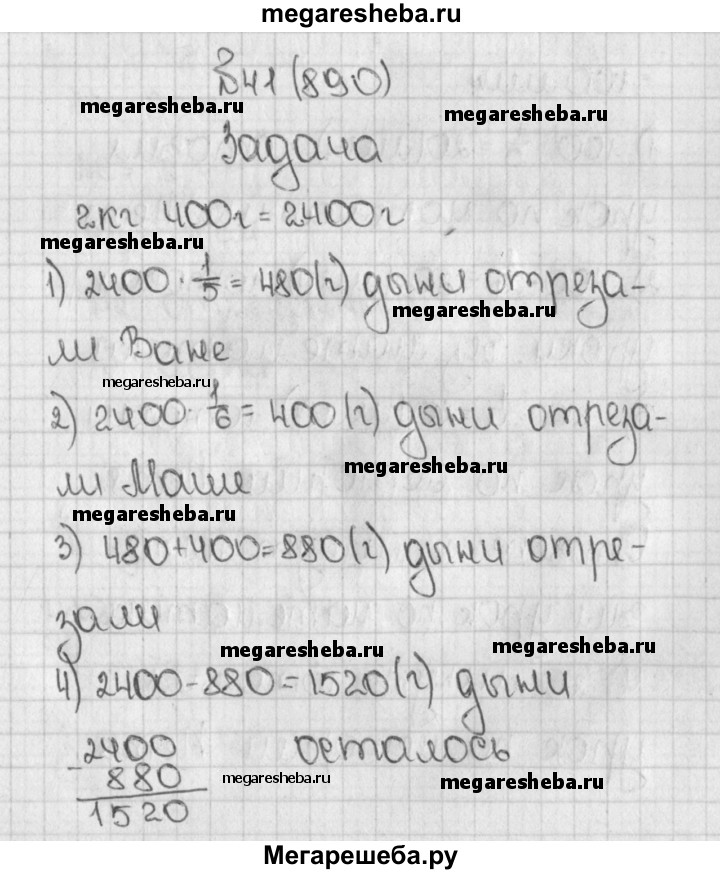 megaresheba.ru
№41 (890)
megaresheba.ru
megaresheba.ru
Задача
2кг 400г = 2400г
megaresheba.ru
1) 2400 · 1/5 = 480(г) дыни отреза-
megaresheba.ru
ли Ване
megaresheba.ru
2) 2400 · 1/6 = 400(г) дыни отреза-
megaresheba.ru
ли Маше
megaresheba.ru
3) 480+400=880(г) дыни отре-
зали
megaresheba.ru
megaresheba.ru
4) 2400-880=1520(г) дыни
осталось
2400
- 880
1520
megaresheba.ru
megaresheba.ru
Мегарешеба.ру